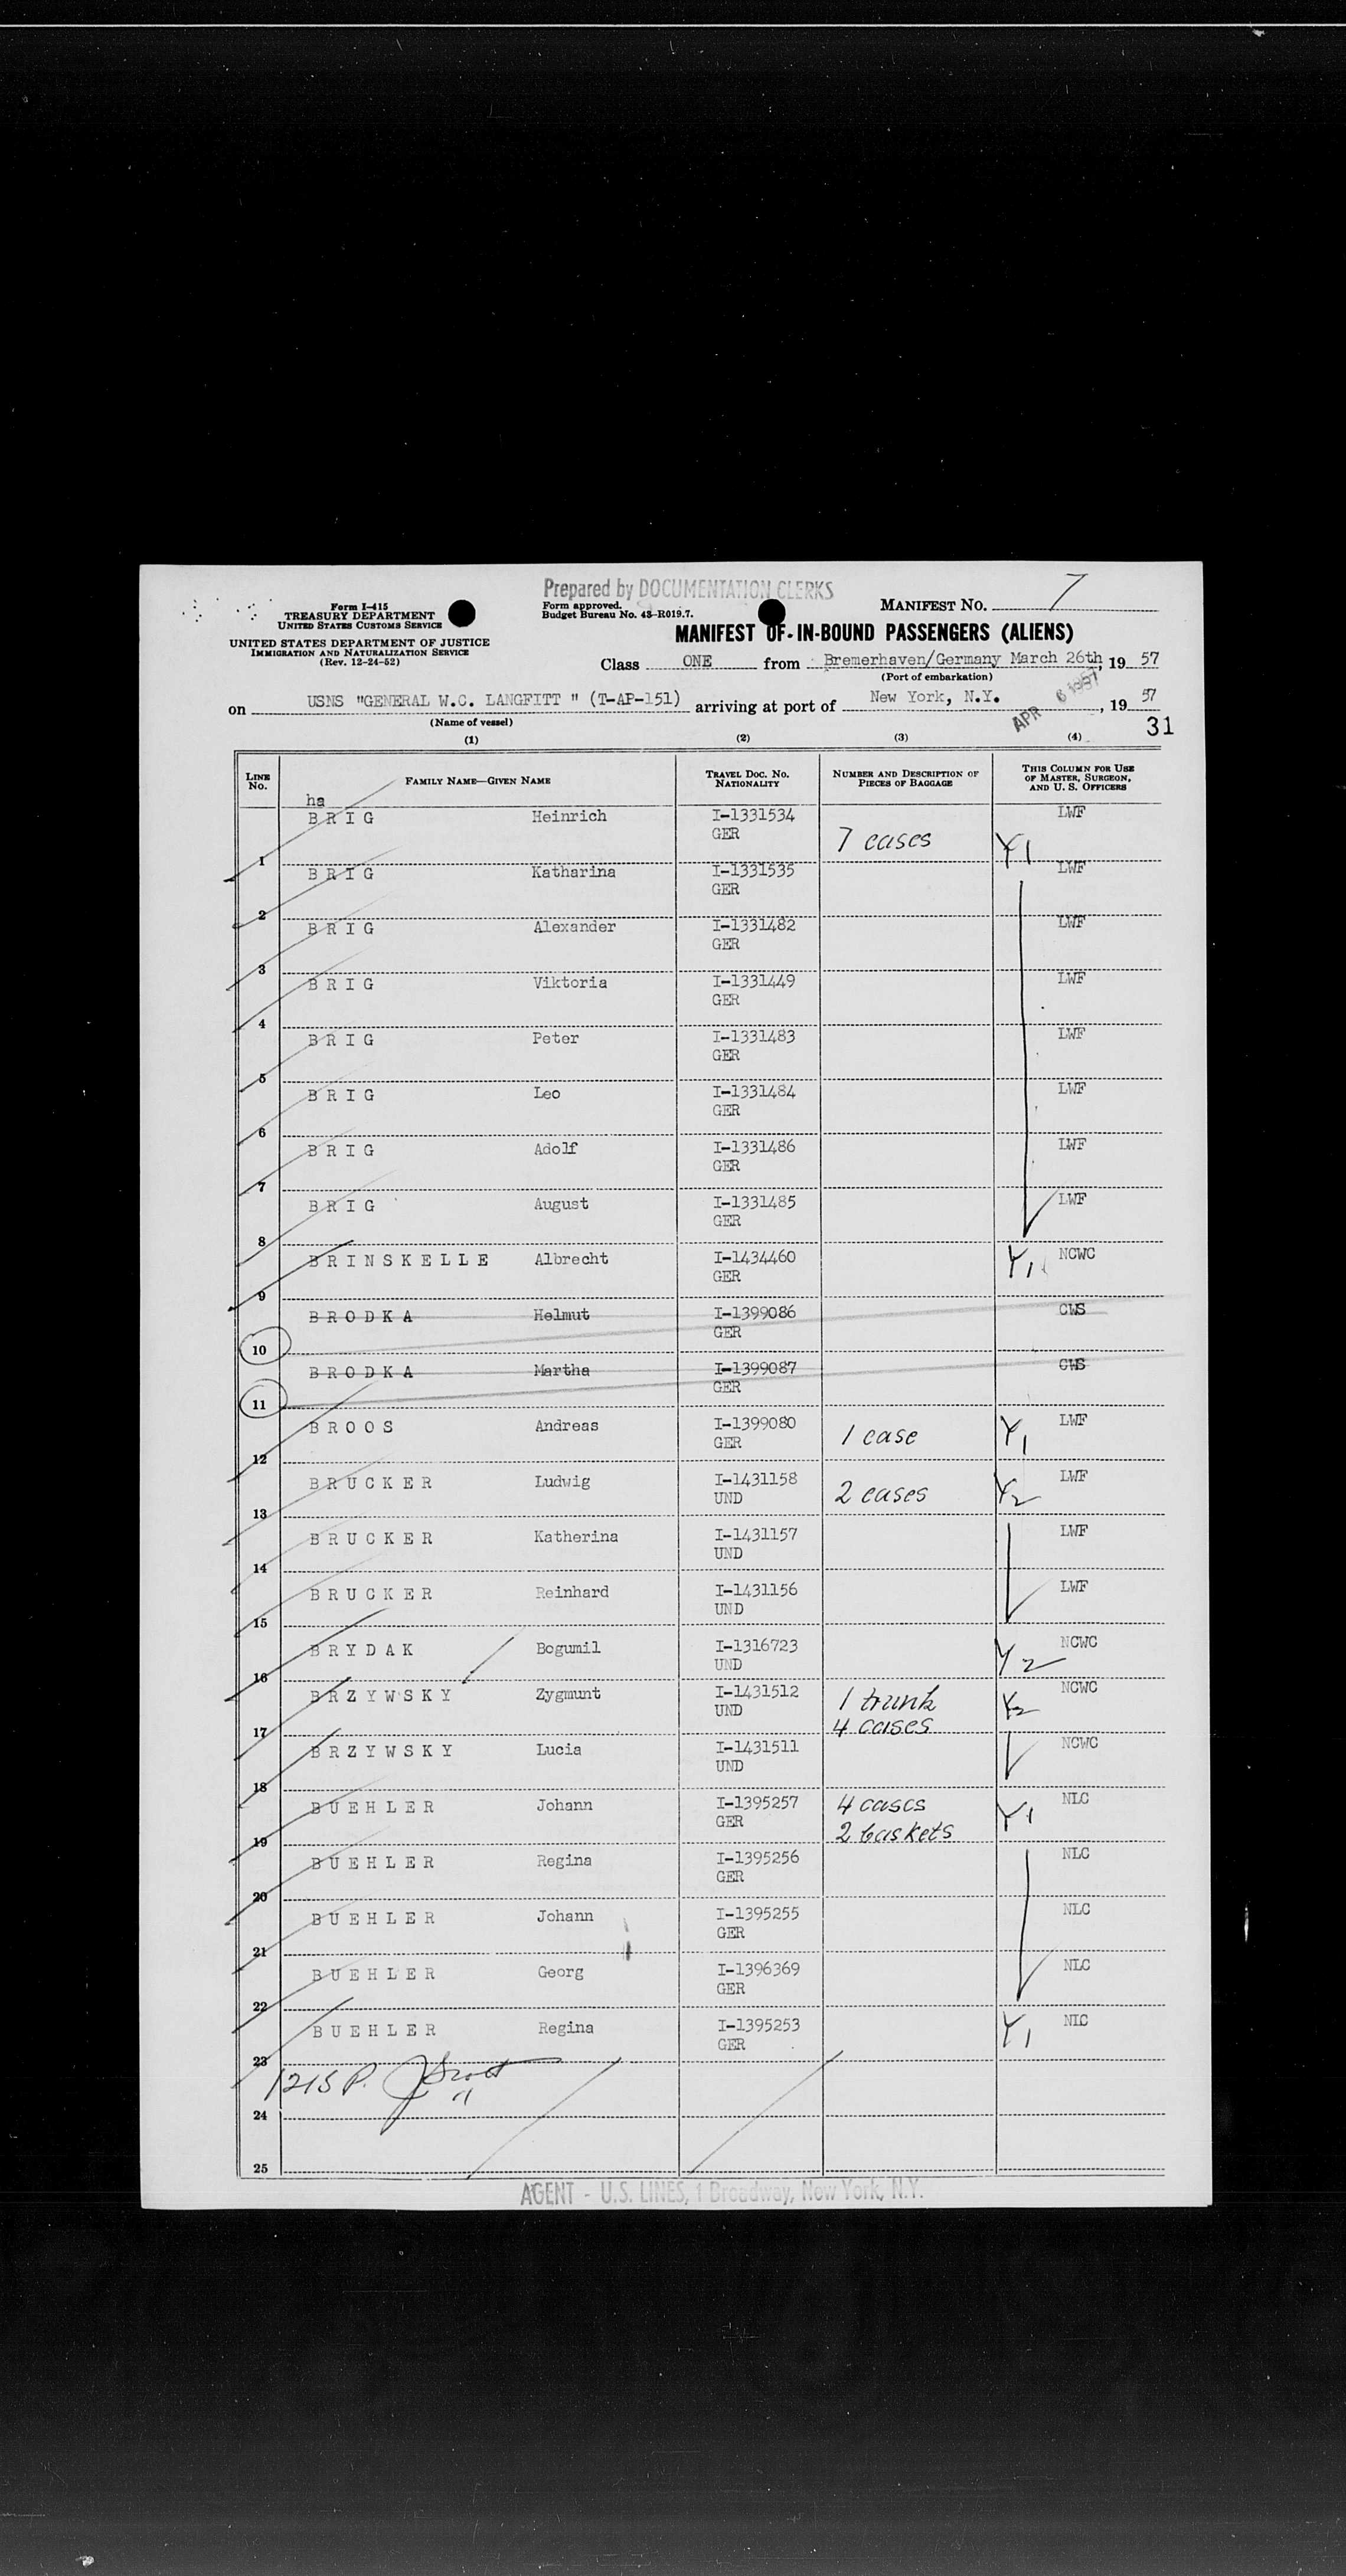 Prepared by DOCUMENTATION CLERKS
7
Form I-415
TREASURY DEPARTMENT
UNITED STATES CUSTOMS SERVICE
UNITED STATES DEPARTMENT OF JUSTICE
IMMIGRATION AND NATURALIZATION SERVICE
(Rev. 12-24-52)
Form approved.
Budget Bureau No. 43-R019.7.
MANIFEST NO.
MANIFEST OF IN-BOUND PASSENGERS (ALIENS)
Class ONE from Bremerhaven/Germany March 26th, 19 57
(Port of embarkation)
on USNS "GENERAL W.C. LANGFITT " (T-AP-151) arriving at port of New York, N.Y. APR 6 1957, 19 57
(Name of vessel)
31
(1) (2) (3) (4)
LINE NO. FAMILY NAME—GIVEN NAME TRAVEL DOC. NO. NATIONALITY NUMBER AND DESCRIPTION OF PIECES OF BAGGAGE THIS COLUMN FOR USE OF MASTER, SURGEON, AND U. S. OFFICERS
ha
1 BRIG Heinrich I-1331534 GER 7 cases Y1 LWF
2 BRIG Katharina I-1331535 GER LWF
3 BRIG Alexander I-1331482 GER LWF
4 BRIG Viktoria I-1331449 GER LWF
5 BRIG Peter I-1331483 GER LWF
6 BRIG Leo I-1331484 GER LWF
7 BRIG Adolf I-1331486 GER LWF
8 BRIG August I-1331485 GER LWF
9 BRINSKELLE Albrecht I-1434460 GER Y1 NCWC
10 BRODKA Helmut I-1399086 GER CWS
11 BRODKA Martha I-1399087 GER CWS
12 BROOS Andreas I-1399080 GER 1 case Y1 LWF
13 BRUCKER Ludwig I-1431158 UND 2 cases Y2 LWF
14 BRUCKER Katherina I-1431157 UND LWF
15 BRUCKER Reinhard I-1431156 UND LWF
16 BRYDAK Bogumil I-1316723 UND Y2 NCWC
17 BRZYWSKY Zygmunt I-1431512 UND 1 trunk 4 cases Y2 NCWC
18 BRZYWSKY Lucia I-1431511 UND NCWC
19 BUEHLER Johann I-1395257 GER 4 cases 2 baskets Y1 NLC
20 BUEHLER Regina I-1395256 GER NLC
21 BUEHLER Johann I-1395255 GER NLC
22 BUEHLER Georg I-1396369 GER NLC
23 BUEHLER Regina I-1395253 GER Y1 NLC
1215 P.
24
25
AGENT - U.S. LINES, 1 Broadway, New York, N.Y.